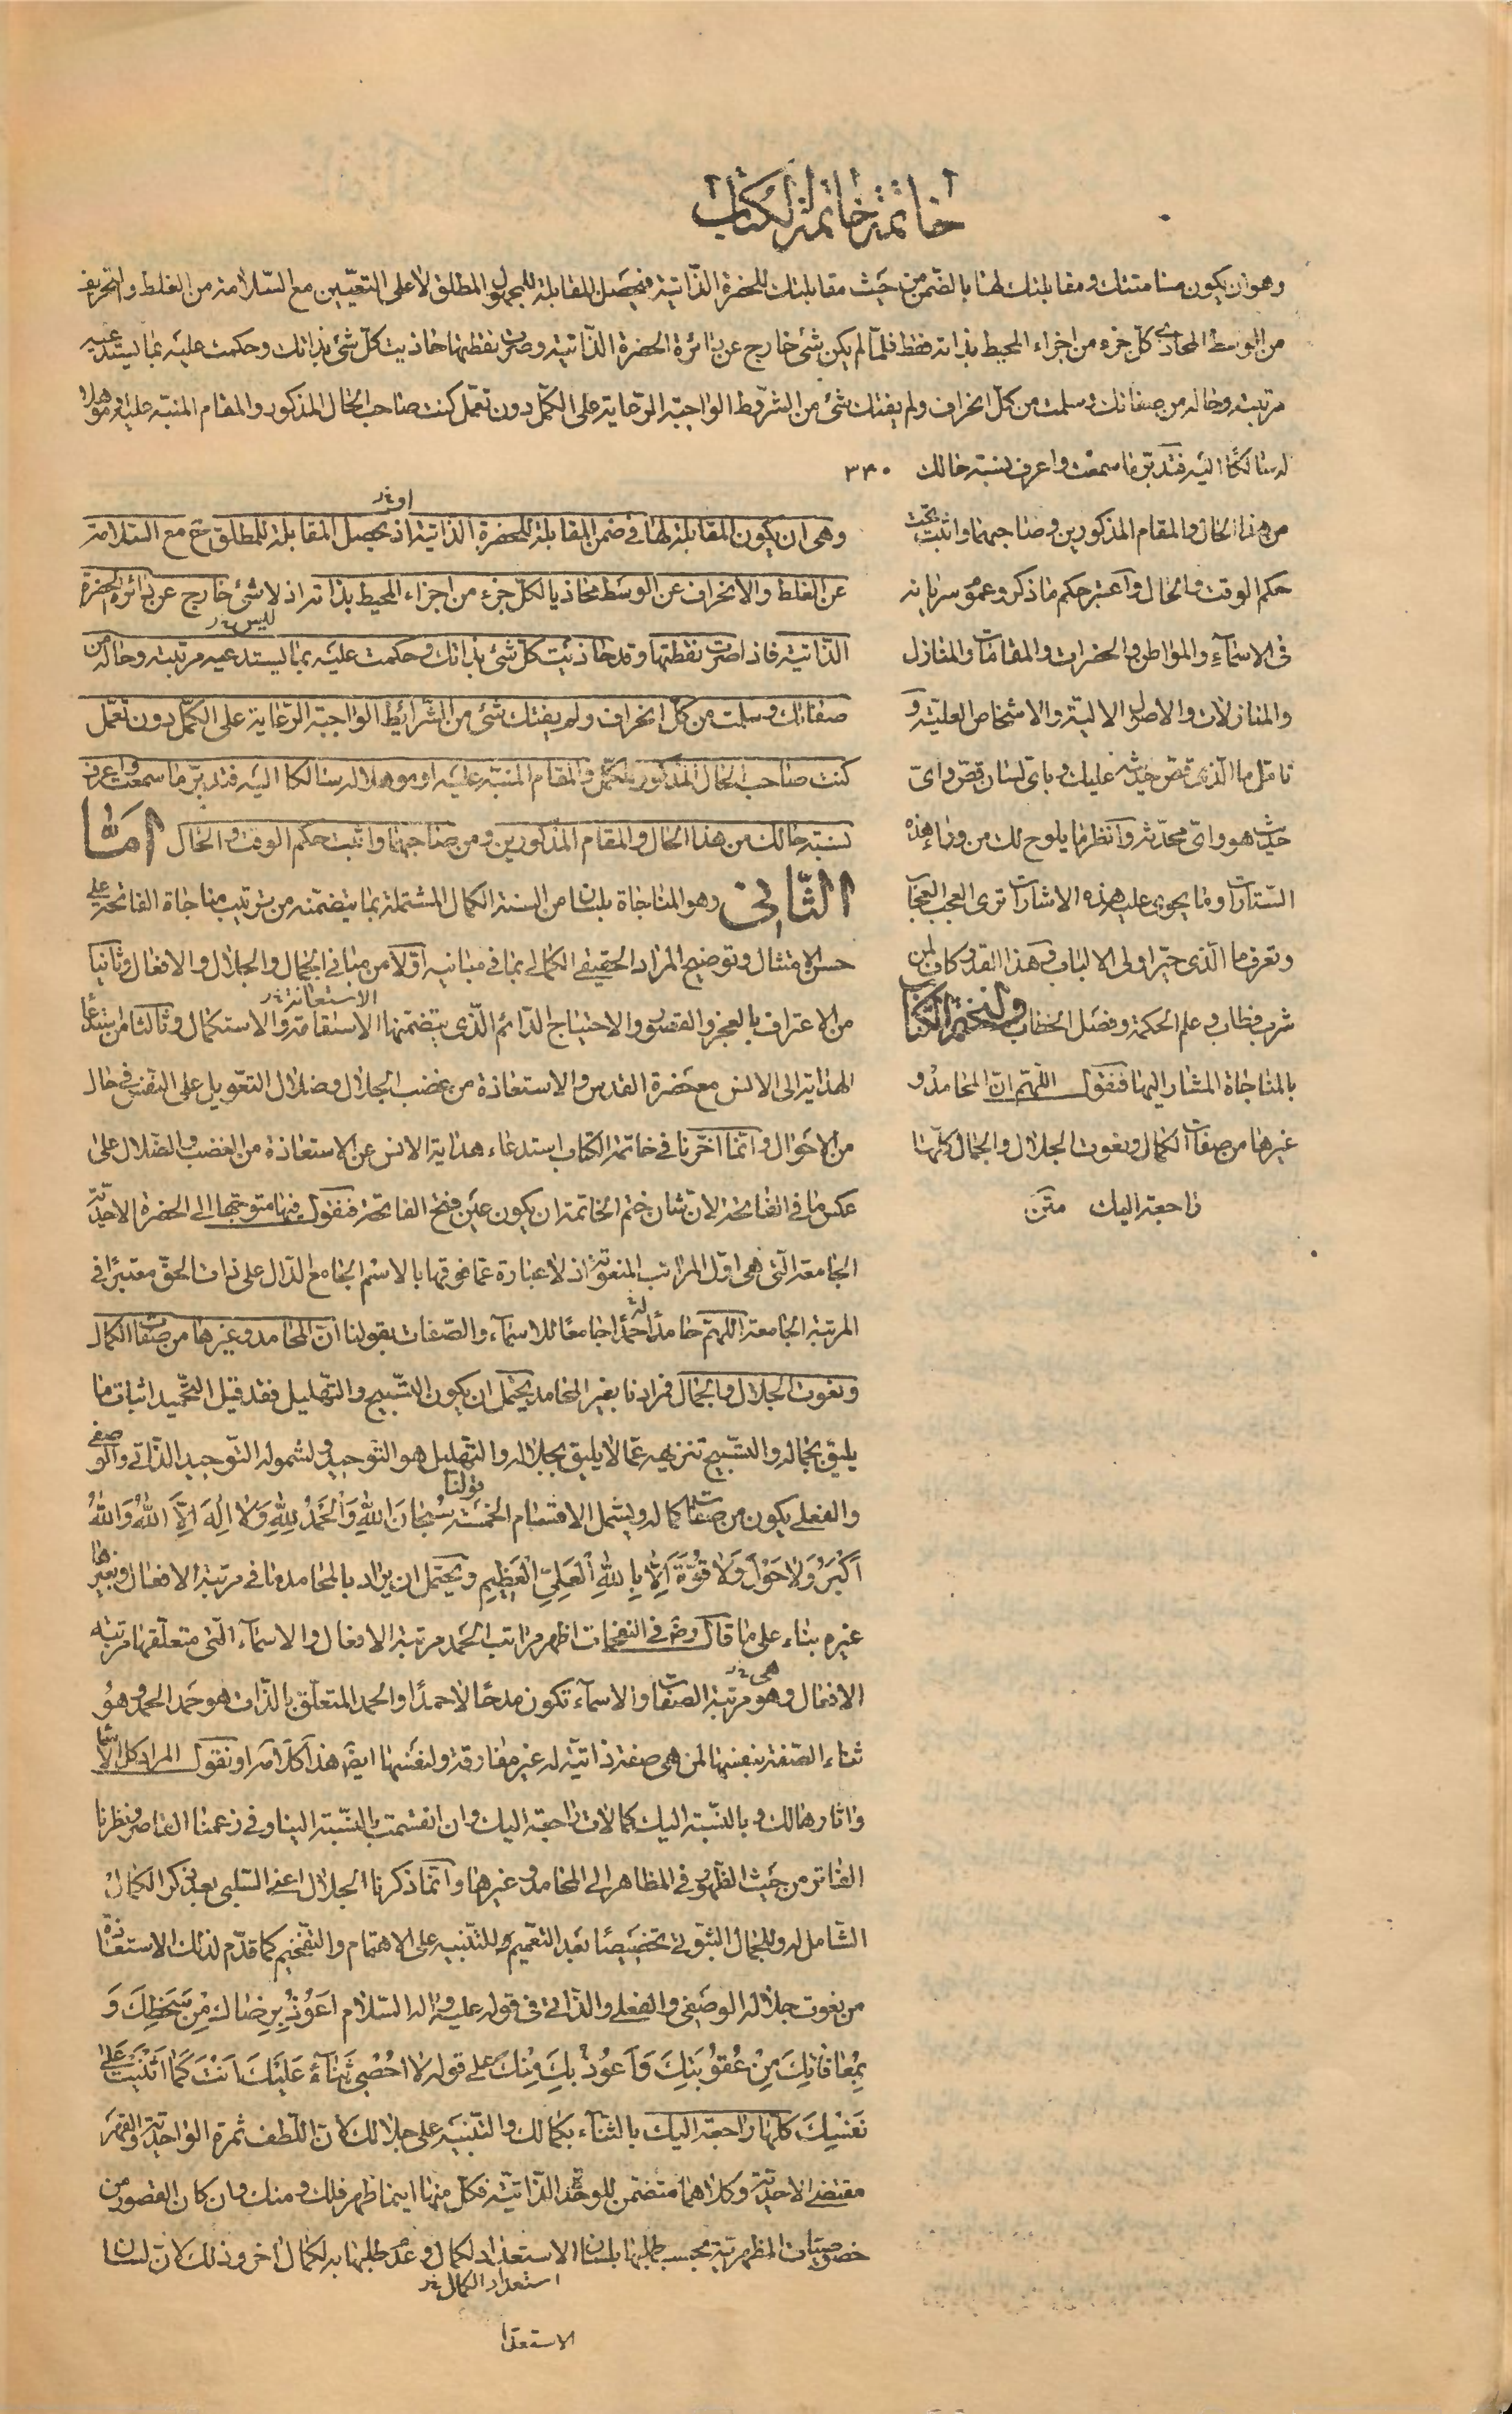 خاتمة خاتمة الكتاب
وهو ان يكون مسامتتك ومقابلتك لها بالضمن من حيث مقابلتك للحضرة الذاتية فيحصل المقابلة للمجهول المطلق لا على التعيين مع السلامة من الغلط والتحريف
من الوسط المحاذى كل جزء من اجزاء المحيط بذاته فقط فلما لم يكن شئ خارج عن دائرة الحضرة الذاتية وصرت نقطتها حاذيت كل شئ بذاتك وحكمت عليه بما يستدعيه
مرتبته وحاله من صفاتك وسلمت من كل انحراف ولم يفتك شئ من الشروط الواجبة الرعاية على الكمل دون تعمل كنت صاحب الحال المذكور والمقام المنبه عليه او موهلا
له سالكا اليه فتدبر ما سمعت واعرف نسبة حالك ٣٣٠
من هذا الحال والمقام المذكورين وصاحبهما واثبت تحت
حكم الوقت والحال واعتبر حكم ما ذكر وعموم سريانه
فى الاسماء والمواطن والحضرات والمقامات والمنازل
والمنازلات والاصول الالهية والاشخاص العلية و
تامل ما الذى قص حديثه عليك وباى لسان قص واى
حديث هو واى محدث وانظر ما يلوح لك من وراء هذه
الستارات وما يحوى عليه هذه الاشارات ترى العجب العجاب
وتعرف ما الذى حير اولى الالباب وهذا القدر كاف لمن
شرب فطاب وعلم الحكمة وفصل الخطاب ولنختم الكتاب
بالمناجاة المشار اليها فنقول اللهم ان المحامد و
غيرها من صفات الكمال ونعوت الجلال والجمال كلها
راجعة اليك متن
وهى ان يكون المقابلة لها فى ضمن المقابلة للحضرة الذاتية اذ يحصل المقابلة للمطلق ح مع السلامة
عن الغلط والانحراف عن الوسط محاذيا لكل جزء من اجزاء المحيط بذاته اذ لا شئ خارج عن دائرة الحضرة
ليس
الذاتية فاذا صرت نقطتها وقد حاذيت كل شئ بذاتك وحكمت عليه بما يستدعيه مرتبته وحاله من
صفاتك وسلمت من كل انحراف ولم يفتك شئ من الشرائط الواجبة الرعاية على الكمل دون تعمل
كنت صاحب الحال المذكور للكمل والمقام المنبه عليه او موهلا له سالكا اليه فتدبر ما سمعت واعرف
نسبة حالك من هذا الحال والمقام المذكورين ومن صاحبهما واثبت حكم الوقت والحال اما
الثانى وهو المناجاة بلسان من السنة الكمال المشتملة بما يتضمنه من ترتيب مناجاة الفاتحة على
حسن الامتثال وتوضيح المراد الحقيقى الكمالى بما فى مبانيه اولا من مبانى الجمال والجلال والافعال وثانيا
الاستعانة
من الاعتراف بالعجز والقصور والاحتياج الدائم الذى يتضمنها الاستقامة والاستكمال وثالثا من استدعاء
الهداية الى الانس مع حضرة القدس والاستعاذة من غضب الجلال وضلال التعويل على النفس فى حال
من الاحوال وانما اخرنا فى خاتمة الكتاب استدعاء هداية الانس عن الاستعاذة من الغضب والضلال على
عكس ما فى الفاتحة لان شان ختم الخاتمة ان يكون عين فتح الفاتحة فنقول فيها متوجها الى الحضرة الاحدية
الجامعة التى هى اول المراتب المنعوتة اذ لا عبارة عما فوقها بالاسم الجامع الدال على ذات الحق معتبرا فى
المرتبة الجامعة اللهم حامدا له حمدا جامعا للاسماء والصفات بقولنا ان المحامد وغيرها من صفات الكمال
ونعوت الجلال والجمال فمرادنا بغير المحامد يحتمل ان يكون التسبيح والتهليل فقد قيل التحميد اثبات ما
يليق بجماله والتسبيح تنزيهه عما لا يليق بجلاله والتهليل هو التوحيد ولشموله التوحيد الذاتى والوصفى
والفعلى يكون من صفات كماله ويشمل الاقسام الخمسة قولنا سُبْحَانَ اللهِ وَالْحَمْدُ لِلّهِ وَلا اِلهَ اِلَّا اللهُ وَاللهُ
اَكْبَرُ وَلا حَوْلَ وَلا قُوَّةَ اِلَّا بِاللهِ الْعَلِىِّ الْعَظِيمِ ويحتمل ان يراد بالمحامد ما فى مرتبة الافعال وبغيرها
غيره بناء على ما قال رض فى النفحات اظهر مراتب الحمد مرتبة الافعال والاسماء التى متعلقها مرتبة
هى
الافعال وهو مرتبة الصفات والاسماء تكون مدحا لا حمدا والحمد المتعلق بالذات هو حمد الحمد وهو
ثناء الصفة بنفسها لمن هى صفة ذاتية له غير مفارقة ولنفسها ايضا هذا كلامه او نقول المراد كل الاسماء
واثارها لك وبالنسبة اليك كمالات راجعة اليك وان انقسمت بالنسبة الينا وفى زعمنا القاصر ونظرنا
الفاتر من حيث الظهور فى المظاهر الى المحامد وغيرها وانما ذكرنا الجلال اعنى السلبى بعد ذكر الكمال
الشامل له وللجمال الثبوتى تخصيصا بعد التعميم وللتنبيه على الاهتمام والتفخيم كما قدم لذلك الاستعاذة
من نعوت جلاله الوصفى والفعلى والذاتى فى قوله عليه واله السلام اَعُوذُ بِرِضَاكَ مِنْ سَخَطِكَ وَ
بِمُعَافَاتِكَ مِنْ عُقُوبَتِكَ وَاَعُوذُ بِكَ مِنْكَ على قوله لا اُحْصِى ثَنَاءً عَلَيْكَ اَنْتَ كَمَا اَثْنَيْتَ عَلى
نَفْسِكَ كلها راجعة اليك بالثناء بكمالك والتنبيه على جلالك لان اللطف ثمرة الواحدية والقهر
مقتضى الاحدية وكلاهما متضمن للوحدة الذاتية فكل منها اينما ظهر فلك ومنك وان كان القصور من
خصوصيات المظهرية بحسب طلبها بلسان الاستعداد لكمال وعدم طلبها به لكمال اخر وذلك لان لسان
استعداد الكمال
الاستعدا